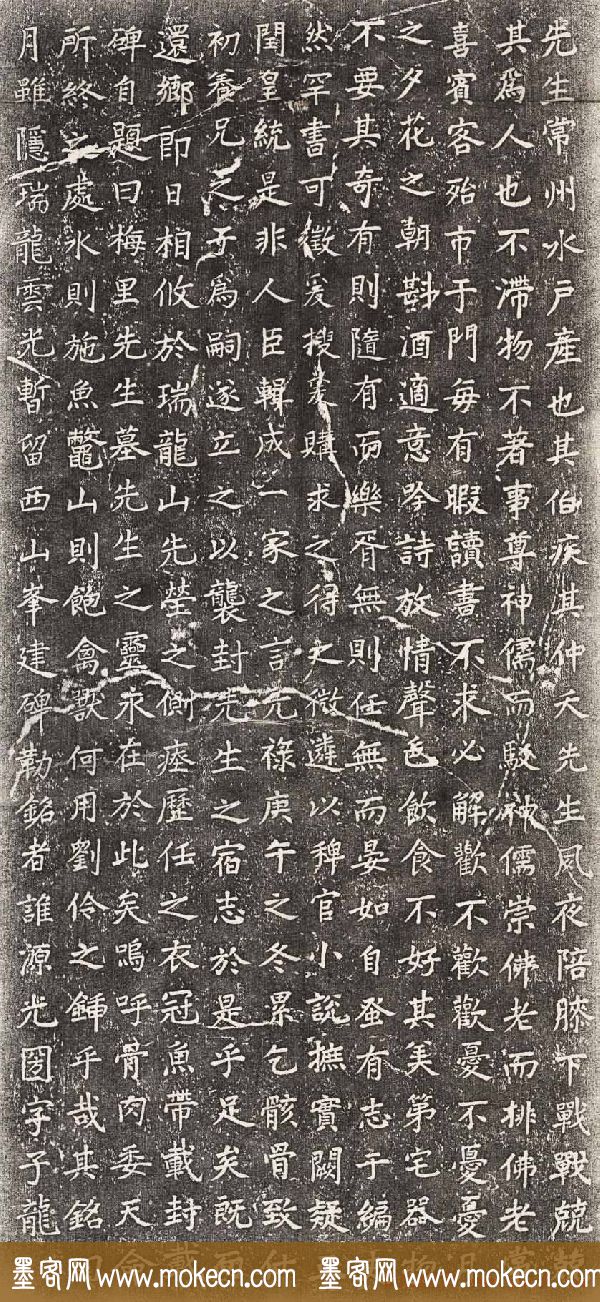 先生常州水戸產也其伯疾其仲夭先生夙夜陪膝下戰戰兢
其爲人也不滯物不著事尊神儒而駁神儒崇佛老而排佛老
喜賓客殆市于門每有暇讀書不求必解歡不歡歡憂不憂憂
之夕花之朝斟酒適意吟詩放情聲色飲食不好其美第宅器
不要其奇有則隨有而樂胥無則任無而晏如自蚤有志于編
然罕書可徵爰搜爰購求之得之微遴以稗官小說摭實闕疑
閏皇統是非人臣輯成一家之言元祿庚午之冬累乞骸骨致
初養兄之子爲嗣遂立之以襲封先生之宿志於是乎足矣既
還鄉即日相攸於瑞龍山先塋之側瘞歷任之衣冠魚帶載封
碑自題曰梅里先生墓先生之靈永在於此矣嗚呼骨肉委天
所終之處水則施魚鼈山則飽禽獸何用劉伶之鍤乎哉其銘
月雖隱瑞龍雲光暫留西山峯建碑勒銘者誰源光圀字子龍
墨客网 www.mokecn.com 墨客网 www.mokecn.com